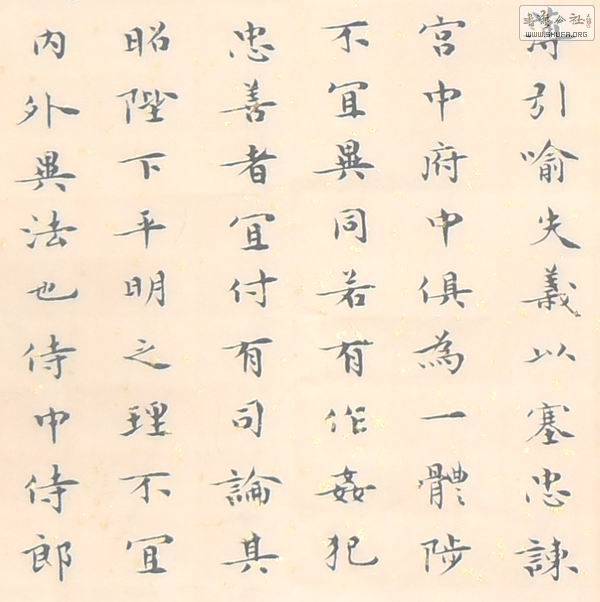 薄引喻失義以塞忠諫
宮中府中俱為一體陟
不宜異同若有作姦犯
忠善者宜付有司論其
昭陛下平明之理不宜
內外異法也侍中侍郎
WWW.SHUFA.ORG